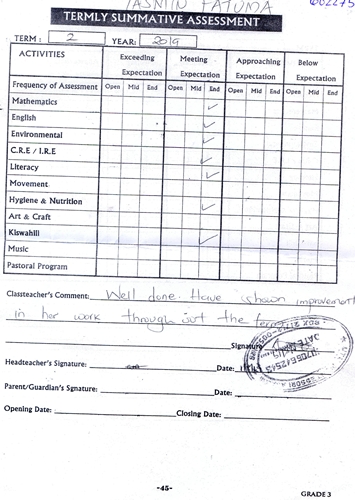 JASMIN FATUMA
TERMLY SUMMATIVE ASSESSMENT
TERM : 2 YEAR: 2019
ACTIVITIES Exceeding Expectation Meeting Expectation Approaching Expectation Below Expectation
Frequency of Assessment Open Mid End Open Mid End Open Mid End Open Mid End
Mathematics ✓
English ✓
Environmental ✓
C.R.E / I.R.E ✓
Literacy ✓
Movement
Hygiene & Nutrition ✓
Art & Craft
Kiswahili ✓
Music
Pastoral Program
Classteacher's Comment: Well done. Have shown improvement
in her work through out the term
Signature
Headteacher's Signature: Date:
Parent/Guardian's Signature: Date:
Opening Date: Closing Date:
-45-
GRADE 3